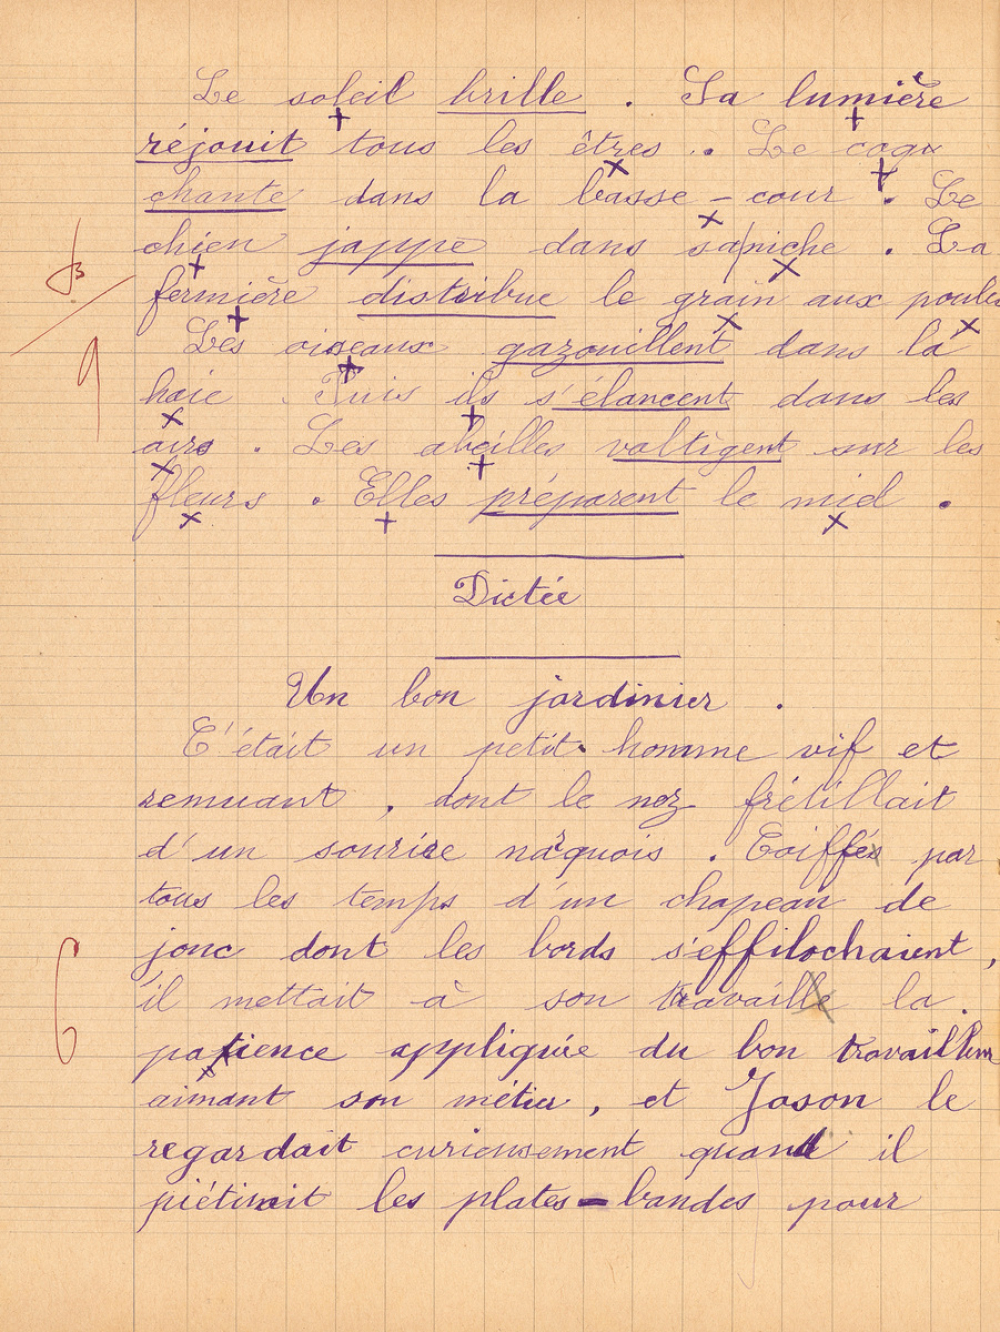 Le soleil brille . Sa lumière
réjouit tous les êtres . Le coq
chante dans la basse - cour . Le
chien jappe dans sa niche . La
fermière distribue le grain aux poules
Les oiseaux gazouillent dans la
haie . Puis ils s'élancent dans les
airs . Les abeilles voltigent sur les
fleurs . Elles préparent le miel .
9
Dictée
Un bon jardinier .
C'était un petit homme vif et
remuant , dont le nez frétillait
d'un sourire narquois . Coiffé par
tous les temps d'un chapeau de
jonc dont les bords s'effilochaient ,
il mettait à son travail la
patience appliquée du bon travailleur
aimant son métier , et Jason le
regardait curieusement quand il
piétinait les plates - bandes pour
6